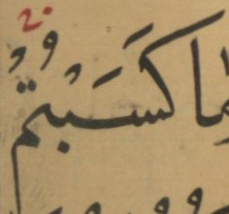 ما كَسَبْتُمْ